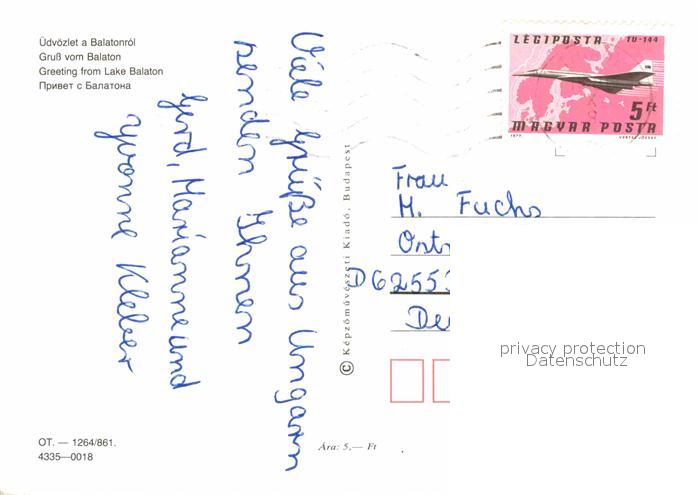 Üdvözlet a Balatonról
Gruß vom Balaton
Greeting from Lake Balaton
Привет с Балатона
Viele Grüße aus Ungarn
senden Ihnen
Gerd, Marianne und
Yvonne Kleber
OT. — 1264/861.
4335—0018
Ára: 5,— Ft
© Képzőművészeti Kiadó, Budapest
LÉGIPOSTA TU-144
5 Ft
MAGYAR POSTA
1977
Frau
M. Fuchs
Ost
D 6255
De
privacy protection
Datenschutz